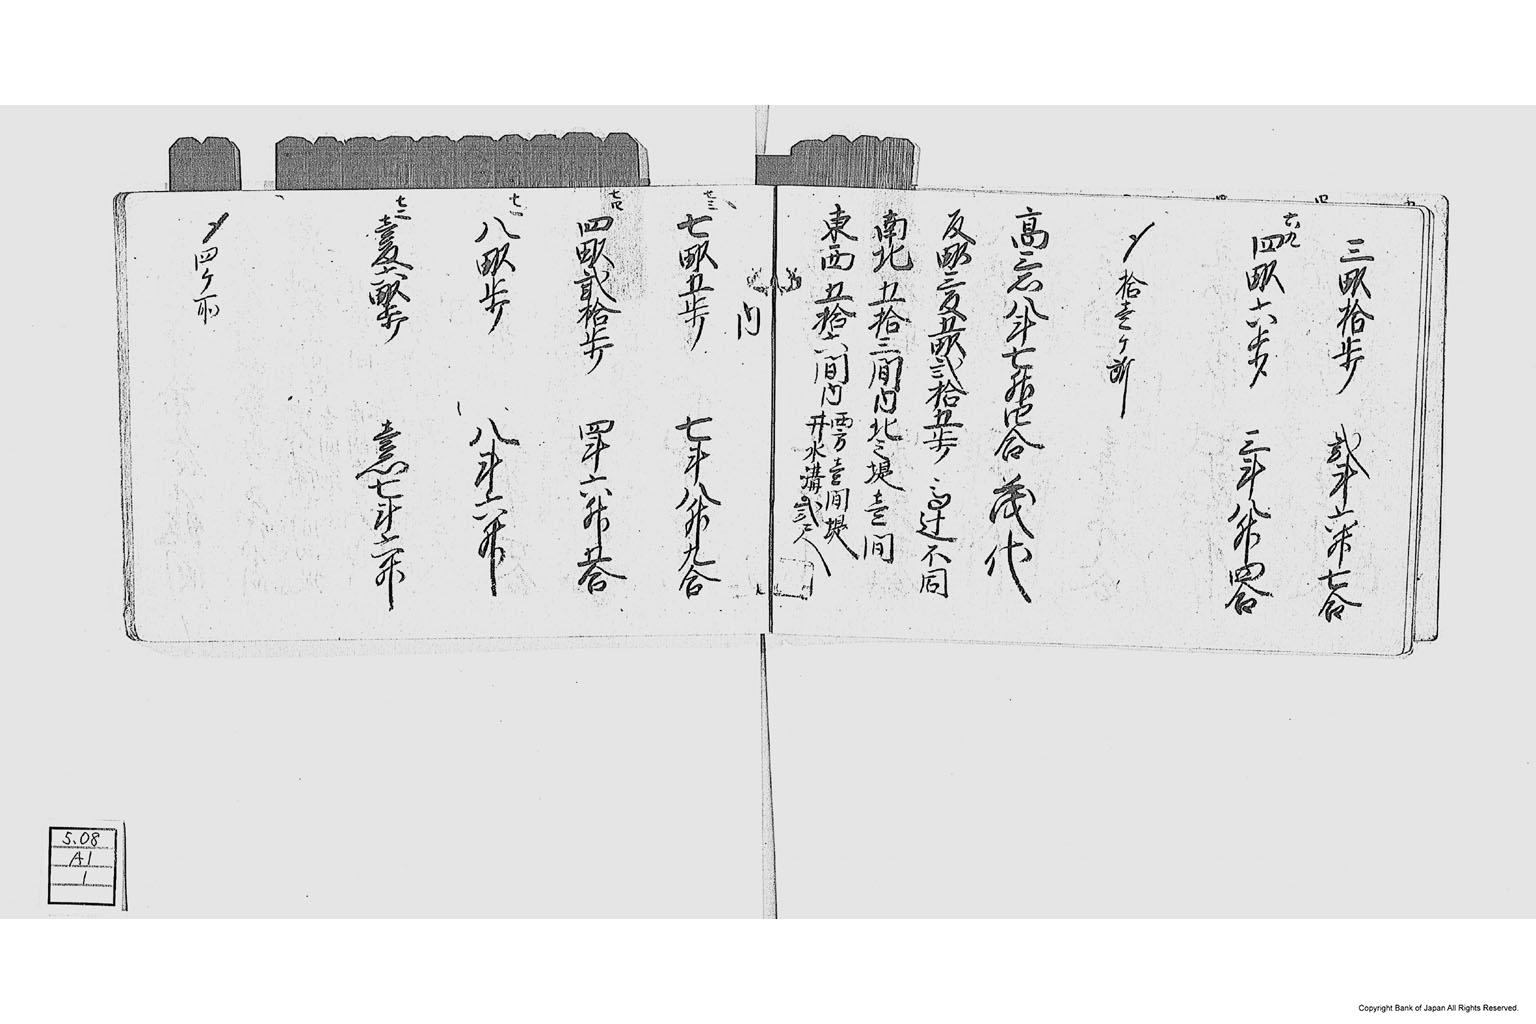 三畝拾歩 弐斗六升七合
六九
四畝六歩 三斗八升四合
〆拾壱ヶ所
高三石八斗七升四合 茂代
反畝三反五畝弐拾五歩 高辻不同
南北五拾三間内北之堤壱間
東西五拾六間内 西方壱間堤
井水溝弐尺
内
七三
七畝五歩 七斗八升九合
七四
四畝弐拾歩 四斗六升五合
七一
八畝歩 八斗六升
七二
壱反六畝歩 壱石七斗六升
〆四ヶ所
5.08
A1
1
Copyright Bank of Japan All Rights Reserved.